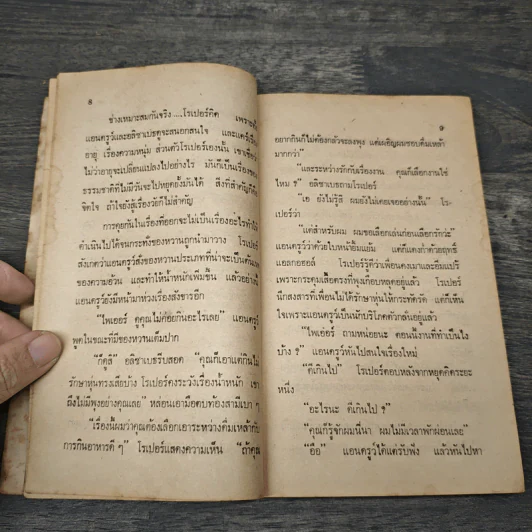 8
ช่างเหมาะสมกันจริง ....โรเปอร์คิด เพราะทั้ง
แอนดรูว์และอลิซาเบธดูจะสนอกสนใจ และแคร์เรื่อง
อายุ เรื่องความหนุ่ม ส่วนตัวโรเปอร์เองนั้น เขาเชื่อว่า
ไม่ว่าอายุจะเปลี่ยนแปลงไปอย่างไร มันก็เป็นเรื่องของ
ธรรมชาติที่ไม่มีวันจะไปหยุดยั้งมันได้ สิ่งที่สำคัญก็คือ
จิตใจ ถ้าใจยังสู้เรื่องวัยก็ไม่สำคัญ
การคุยกันในเรื่องที่ออกจะไม่เป็นเรื่องอะไรทำให้
ดำเนินไปได้จนกระทั่งของหวานถูกนำมาวาง โรเปอร์
สังเกตว่าแอนดรูว์สั่งของหวานประเภทที่น่าจะเป็นต้นเหตุ
ของความอ้วน และทำให้น้ำหนักเพิ่มขึ้น แล้วอย่างนี้
แอนดรูว์ยังมีหน้ามาห่วงเรื่องสังขารอีก
"ไพเออร์ ดูคุณไม่ค่อยกินอะไรเลย" แอนดรูว์
พูดในขณะที่มีของหวานเต็มปาก
"ก็ดูสิ" อลิซาเบธรีบสอด "คุณก็เอาแต่กินไม่
รักษาหุ่นทรงเสียบ้าง โรเปอร์คงระวังเรื่องน้ำหนัก เขา
ถึงไม่มีพุงอย่างคุณเลย" หล่อนเอามือตบท้องสามีเบา ๆ
"เรื่องนี้ผมว่าคุณต้องเลือกเอาระหว่างดื่มเหล้ากับ
การกินอาหารดี ๆ" โรเปอร์แสดงความเห็น "ถ้าคุณ
๙
อยากกินก็ไม่ต้องกลัวจะลงพุง แต่เผอิญผมชอบดื่มเหล้า
มากกว่า"
"และระหว่างรักกับเรื่องงาน คุณก็เลือกงานใช่
ไหม ?" อลิซาเบธถามโรเปอร์
"เอ ยังไม่รู้สิ ผมยังไม่เคยเจออย่างนี้นี่" โร-
เปอร์ว่า
"แต่สำหรับผม ผมขอเลือกเล่นก่อนเลือกรักว่ะ"
แอนดรูว์ว่าด้วยใบหน้ายิ้มแย้ม แต่ก็แดงก่ำด้วยฤทธิ์
แอลกอฮอล์ โรเปอร์รู้ดีว่าเพื่อนคงเมาและอิ่มแปร้
เพราะกระดุมเสื้อตรงที่พุงเกือบหลุดอยู่แล้ว โรเปอร์
นึกสงสารที่เพื่อนไม่ได้รักษาหุ่นให้กระทัดรัด แต่ก็เห็น
ใจเพราะแอนดรูว์เป็นนักบริโภคตัวกลั่นอยู่แล้ว
"ไพเออร์ ถามหน่อยนะ ตอนนี้งานที่ทำเป็นไง
บ้าง ?" แอนดรูว์หันไปสนใจเรื่องใหม่
"ดีเกินไป" โรเปอร์ตอบหลังจากหยุดคิดระยะ
หนึ่ง
"อะไรนะ ดีเกินไป ?"
"คุณก็รู้จักผมนี่นา ผมไม่มีเวลาพักผ่อนเลย"
"อือ" แอนดรูว์ได้แต่รับฟัง แล้วหันไปหา